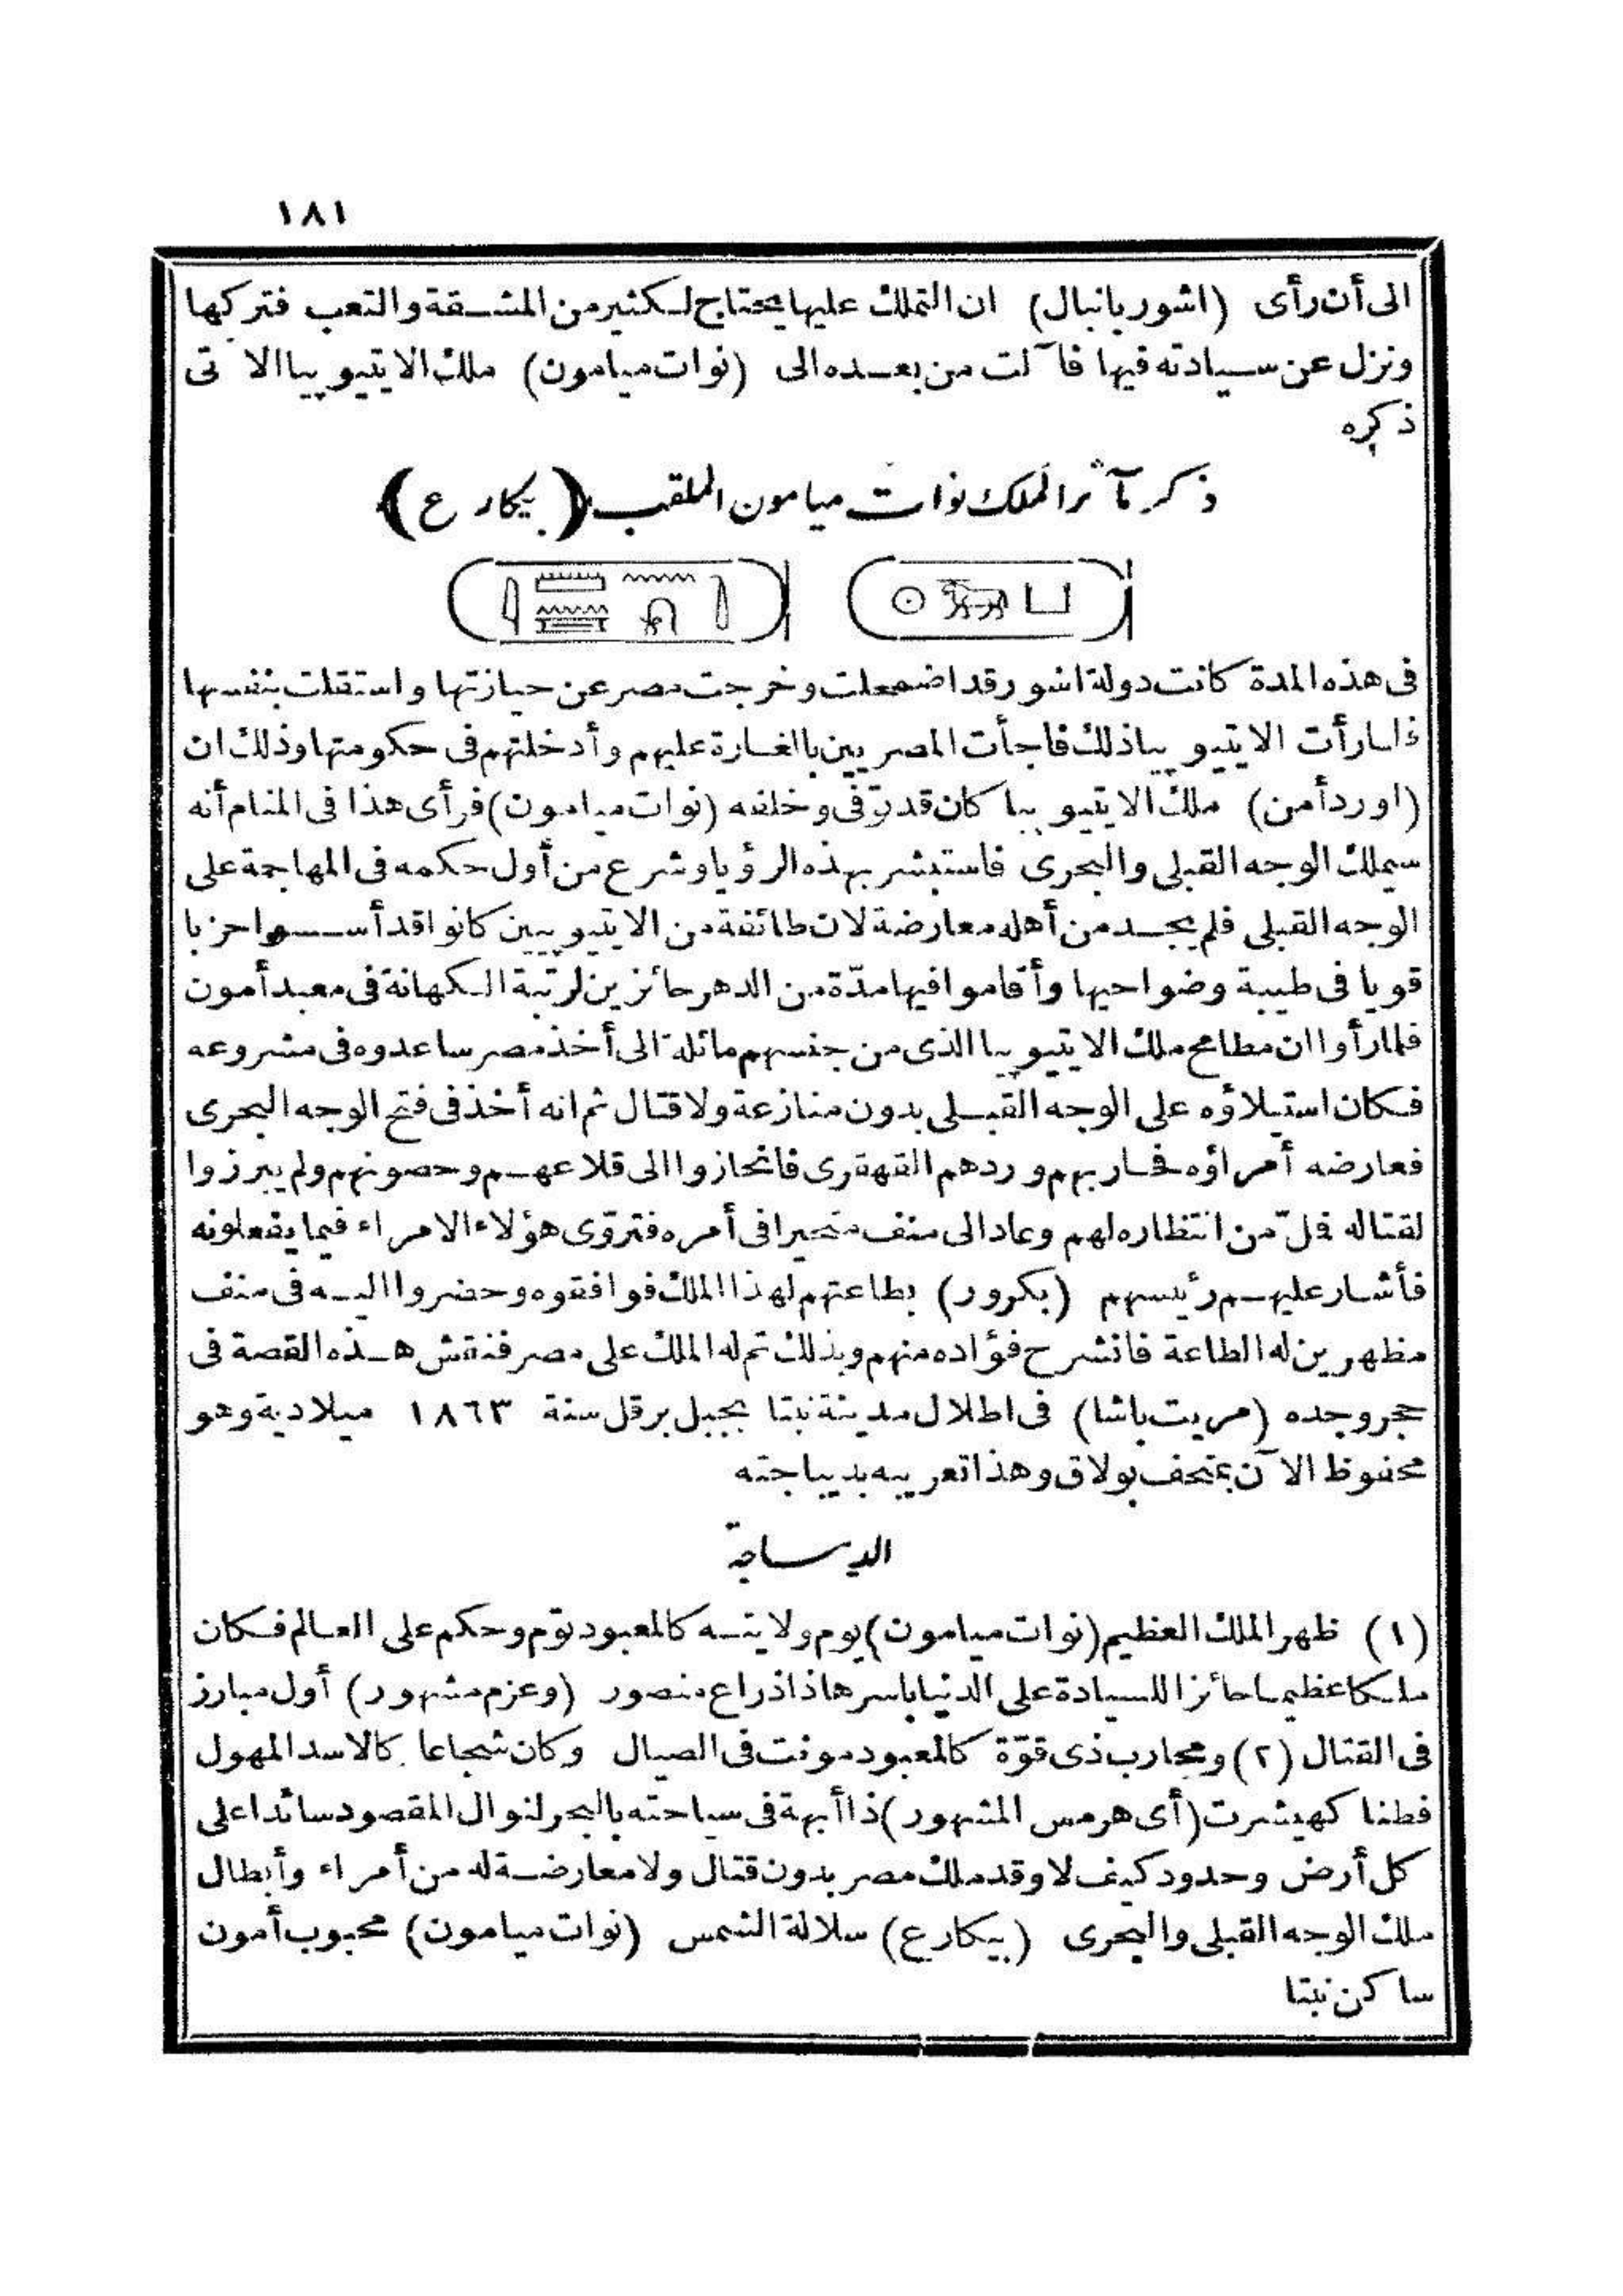 ١٨١
الى أن رأى (اشور بانبال) ان التملك عليها يحتاج لكثير من المشقة والتعب فتركها
ونزل عن سيادته فيها فآلت من بعده الى (نوات ميامون) ملك الايتيوپيا الآتى
ذكره
ذكر مآثر الملك نوات ميامون الملقب (بيكارع)
فى هذه المدة كانت دولة اشور قد اضمحلت وخرجت مصر عن حيازتها واستقلت بنفسها
فلما رأت الايتيوپيا ذلك فاجأت المصريين بالغارة عليهم وأدخلتهم فى حكومتها وذلك ان
(اورد أمن) ملك الايتيوپيا كان قد توّفى وخلفه (نوات ميامون) فرأى هذا فى المنام أنه
سيملك الوجه القبلى والبحرى فاستبشر بهذه الرؤيا وشرع من أول حكمه فى المهاجمة على
الوجه القبلى فلم يجد من أهله معارضة لان طائفة من الايتيوپيين كانوا قد أسسوا حزبا
قويا فى طيبة وضواحيها وأقاموا فيها مدّة من الدهر حائزين لرتبة الكهانة فى معبد أمون
فلما رأوا ان مطامح ملك الايتيوپيا الذى من جنسهم مائلة الى أخذ مصر ساعدوه فى مشروعه
فكان استيلاؤه على الوجه القبلى بدون منازعة ولا قتال ثم انه أخذ فى فتح الوجه البحرى
فعارضه أمراؤه فحاربهم وردهم القهقرى فانحازوا الى قلاعهم وحصونهم ولم يبرزوا
لقتاله فملّ من انتظاره لهم وعاد الى منف متحيرا فى أمره فتروّى هؤلاء الامراء فيما يفعلونه
فأشار عليهم رئيسهم (بكرور) بطاعتهم لهذا الملك فوافقوه وحضروا اليه فى منف
مظهرين له الطاعة فانشرح فؤاده منهم وبذلك تم له الملك على مصر فنقش هذه القصة فى
حجر وجده (مريت باشا) فى اطلال مدينة نبتا بجبل برقل سنة ١٨٦٣ ميلادية وهو
محفوظ الآن بمتحف بولاق وهذا تعريبه بديباجته
الديباجة
(١) ظهر الملك العظيم (نوات ميامون) يوم ولايته كالمعبود توّم وحكم على العالم فكان
ملكا عظيما حائزا للسيادة على الدنيا باسرها ذا ذراع منصور (وعزم مشهور) أول مبارز
فى القتال (٢) ومحارب ذى قوّة كالمعبود مونت فى الصيال وكان شجاعا كالاسد المهول
فطنا كهيثرت (أى هرمس المشهور) ذا أبهة فى سياحته بالبحر لنوال المقصود سائدا على
كل أرض وحدود كيف لا وقد ملك مصر بدون قتال ولا معارضة له من أمراء وأبطال
ملك الوجه القبلى والبحرى (بيكارع) سلالة الشمس (نوات ميامون) محبوب أمون
ساكن نبتا